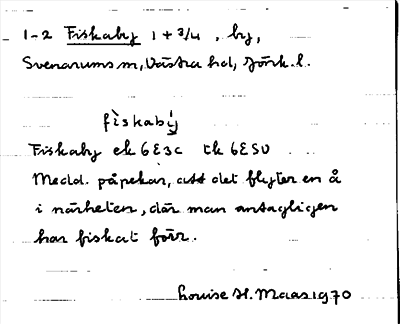 1-2 Fiskaby 1 + 3/4, by,
Svenarums sn, Västra hd, Jönk. l.
fìskabý
Fiskaby ek 6E3c tk 6E SV
Medd. påpekar, att det flyter en å
i närheten, där man antagligen
har fiskat förr.
Louise H. Maas 1970